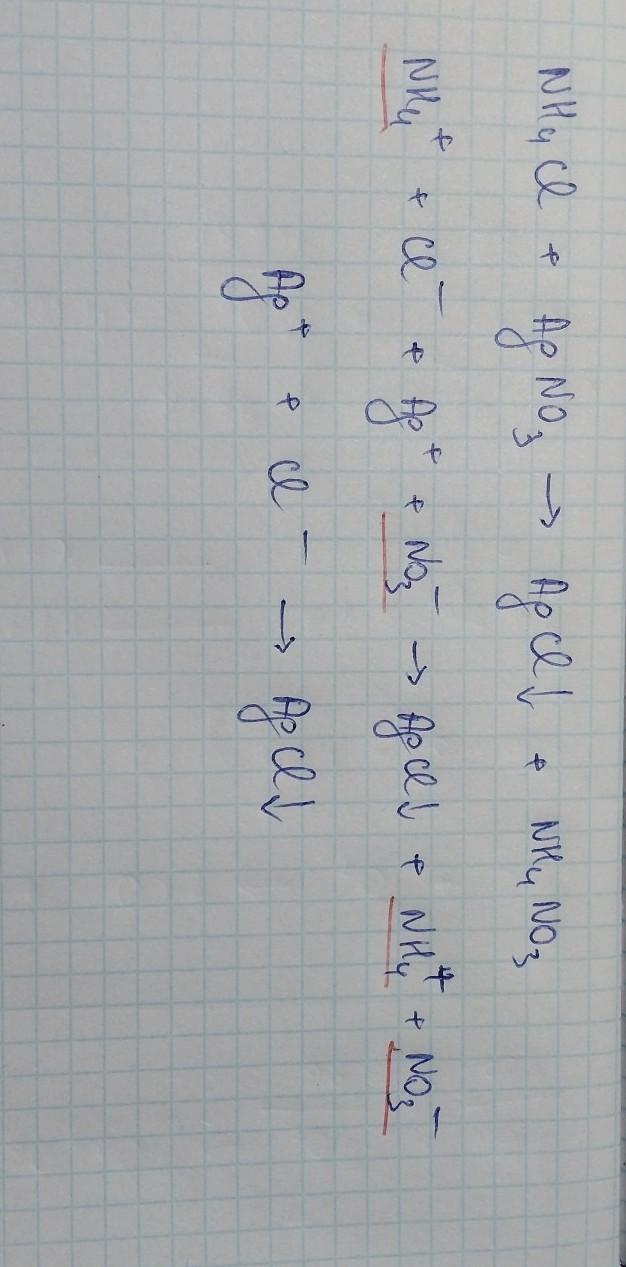 NH₄Cl + AgNO₃ → AgCl↓ + NH₄NO₃
NH₄⁺ + Cl⁻ + Ag⁺ + NO₃⁻ → AgCl↓ + NH₄⁺ + NO₃⁻
Ag⁺ + Cl⁻ → AgCl↓